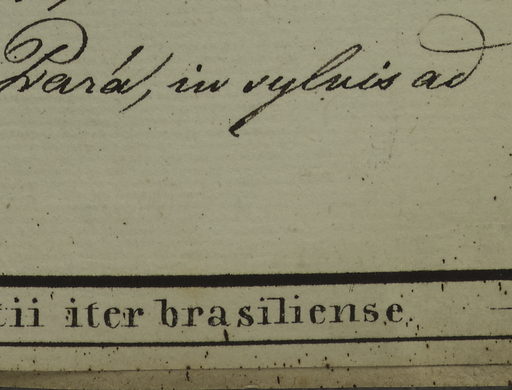 Pará, in sylvis ad
tii iter brasiliense.